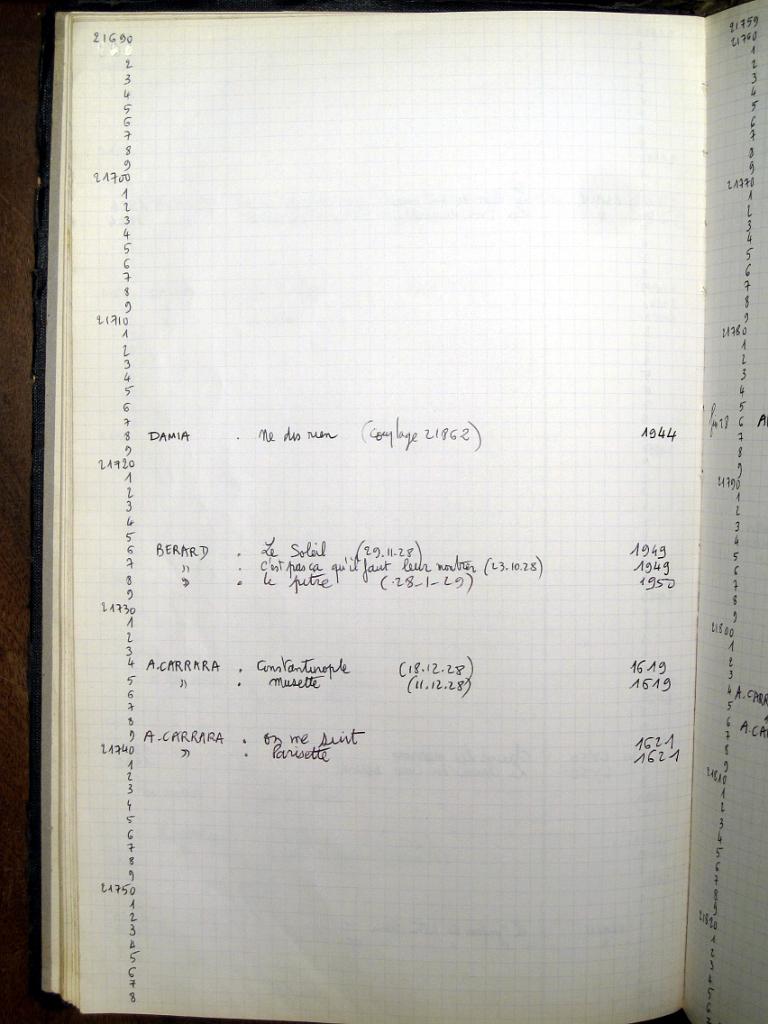 21690
2
3
4
5
6
7
8
9
21700
1
2
3
4
5
6
7
8
9
21710
1
2
3
4
5
6
7
8 DAMIA . Ne dis rien (couplage 21862) 1944
9
21720
1
2
3
4
5
6 BERARD . Le Soleil (29.11.28) 1949
7 " . c'est pas ça qu'il faut leur montrer (23.10.28) 1949
8 " . le pitre (28-1-29) 1950
9
21730
1
2
3
4 A.CARRARA . Constantinople (18.12.28) 1619
5 " . Musette (11.12.28) 1619
6
7
8
9 A.CARRARA . On me suit 1621
21740 " . Parisette 1621
1
2
3
4
5
6
7
8
9
21750
1
2
3
4
5
6
7
8
21759
21760
1
2
3
4
5
6
7
8
9
21770
1
2
3
4
5
6
7
8
9
21780
1
2
3
4
5
6 A
7
8
9
21790
1
2
3
4
5
6
7
8
9
21800
1
2
3
4 A.CARR
5
6 A.CA
7
8
9
21810
1
2
3
4
5
6
7
8
9
21820
1
2
3
4
5